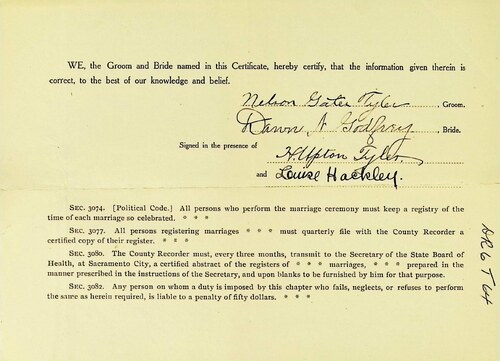 WE, the Groom and Bride named in this Certificate, hereby certify, that the information given therein is
correct, to the best of our knowledge and belief.
Nelson Gater Tyler, Groom.
Dawn N Godfrey, Bride.
Signed in the presence of
H. Upton Tyler
and Louise Hackley.
SEC. 3074. [Political Code.] All persons who perform the marriage ceremony must keep a registry of the
time of each marriage so celebrated. * * *
SEC. 3077. All persons registering marriages * * * must quarterly file with the County Recorder
a certified copy of their register. * * *
SEC. 3080. The County Recorder must, every three months, transmit to the Secretary of the State Board of
Health, at Sacramento City, a certified abstract of the registers of * * * marriages, * * * prepared in the
manner prescribed in the instructions of the Secretary, and upon blanks to be furnished by him for that purpose.
SEC. 3082. Any person on whom a duty is imposed by this chapter who fails, neglects, or refuses to perform
the same as herein required, is liable to a penalty of fifty dollars. * * *